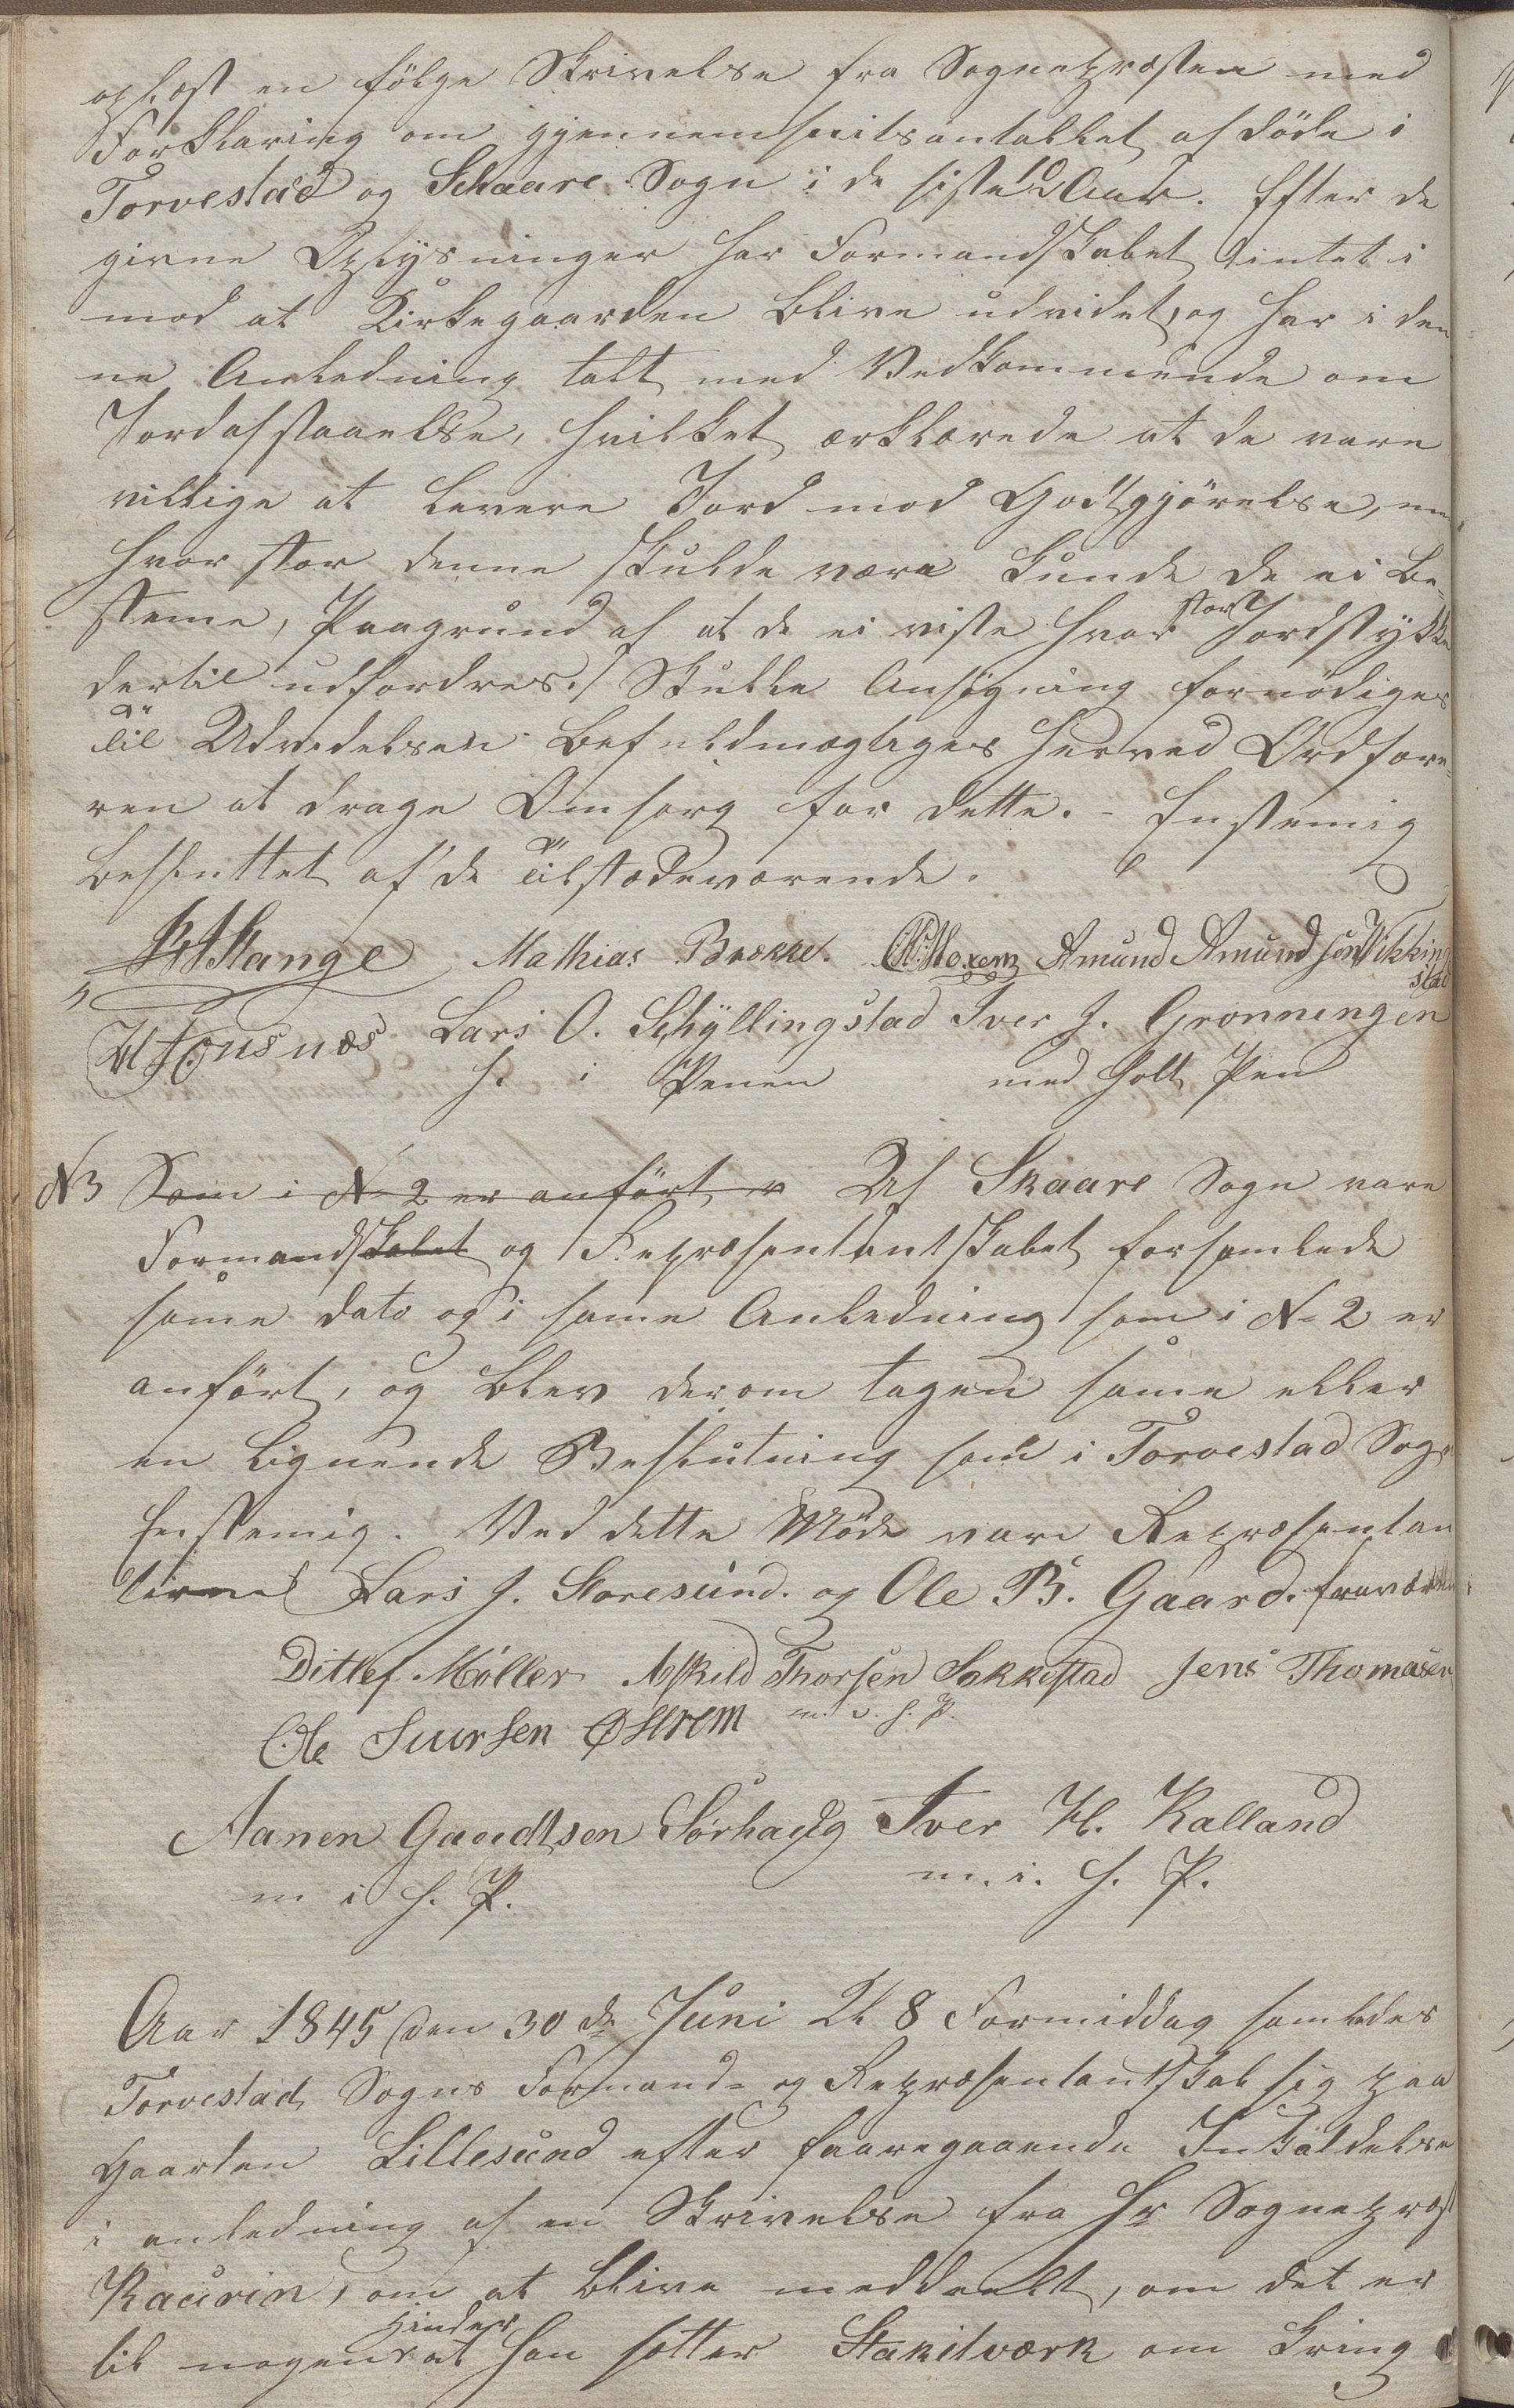 oplæst en følge Skrivelse fra Sognepræsten med
Forklaring om gjennemsnitsantallet af døde i
Torvestad og Schaare Sogn i de siste 10 Aar. Efter de
givne Oplysninger har Formandskabet intet i
mod at Kirkegaarden blive udvidet, og har i den
ne Anledning talt med Vedkommende om
Jordafstaaelse, hvilket erklærede at de vare
villige at levere Jord mod Godtgjörelse, men
hvor stor denne skulde være kunde de ei be-
steme, Paagrund af at de ei viste hvor stort Jordstykke
dertil udfordres. / Skulle Ansøgning fornödiges
til Udvidelsen befuldmægtiges herved Ordföre-
ren at drage Omsorg for dette. - Enstemig
besluttet af de tilstædeværende.
Stange Mathias Brække. Amund Amundsen Vikking
stad
Housnæs Lars O. Schyllingstad Iver J. Gronningen
h. i Penen med holt Pen
N 3 Som i N 2 er anfört Af Skaare Sogn vare
Formandskabet og Repræsentantskabet forsamlede
same dato og i same Anledning som i N 2 er
anfört, og blev derom tagen same eller
en lignende Beslutning som i Torvestad Sogn
Enstemig. Ved dette Möde vare Repræsentan
terne Lars J. Storesund. og Ole B. Gaard. fraværende
Ditlef Møller Askild Thorsen Sakkestad Jens Thomasen
m. i. h. P.
Ole Suursen Østrem
Aanen Gaudtsen Sørhaug Iver H. Kalland
m i h. P. m. i. h. P.
Aar 1845 den 30 de Juni Kl 8 Formiddag samledes
Torvestad Sogns Formand- og Repræsentantskab sig paa
Gaarden Lillesund efter foregaaende Inkaldelse
i anledning af en Skrivelse fra Hr Sognepræst
Kaurin, om at blive meddeelt, om det er
til nogen hinder at han sætter Stakitværk om kring